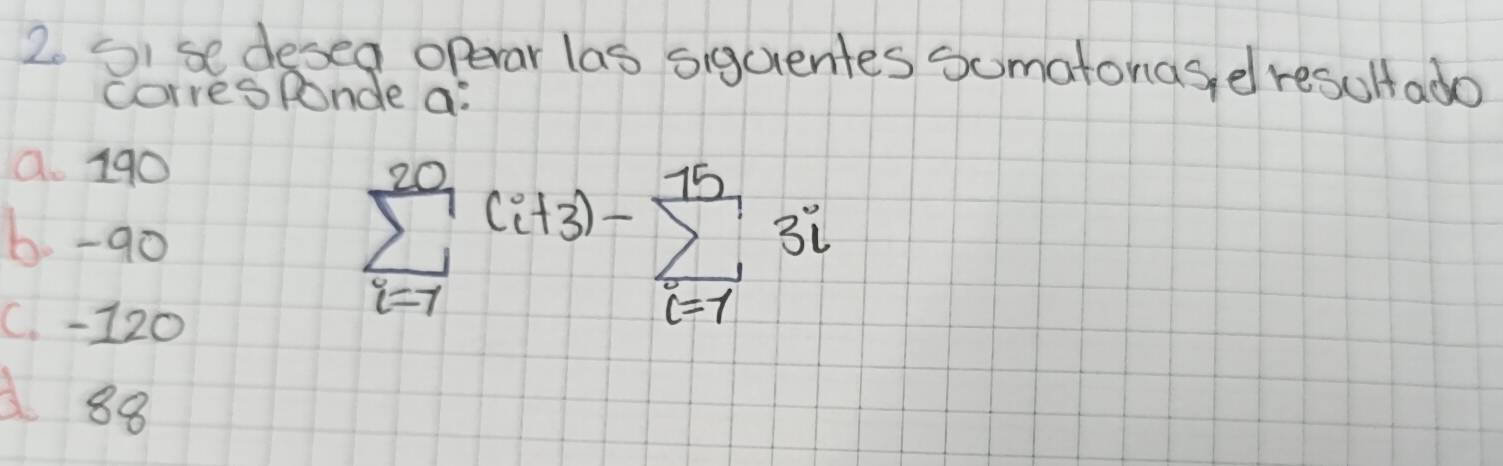 2. Si se desea operar las siguientes sumatorias, el resultado
corresponde a:
a. 190
b. -90
c. -120
d 88
20 15
∑ (i+3) - ∑ 3i
i=1 i=1